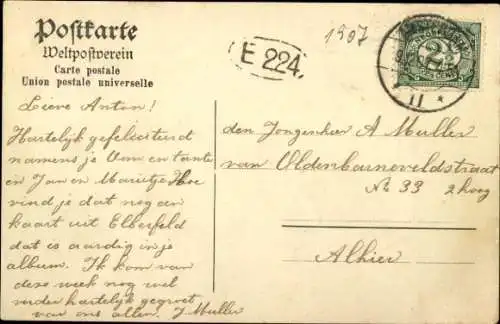 Postkarte
Weltpostverein
Carte postale
Union postale universelle
1907
E 224.
2½
CENT
11
Lieve Anton!
Hartelijk gefeliciteerd
namens je Oom en tante
en Jan en Marietje Hoe
vind je dat nog een
kaart uit Elberfeld
dat is aardig in je
album. Ik kom van
deze week nog wel
verder hartelijk gegroet
van ons allen. J Muller
den Jongenheer A Muller
van Oldenbarneveldstraat
No 33 2 hoog
Alhier